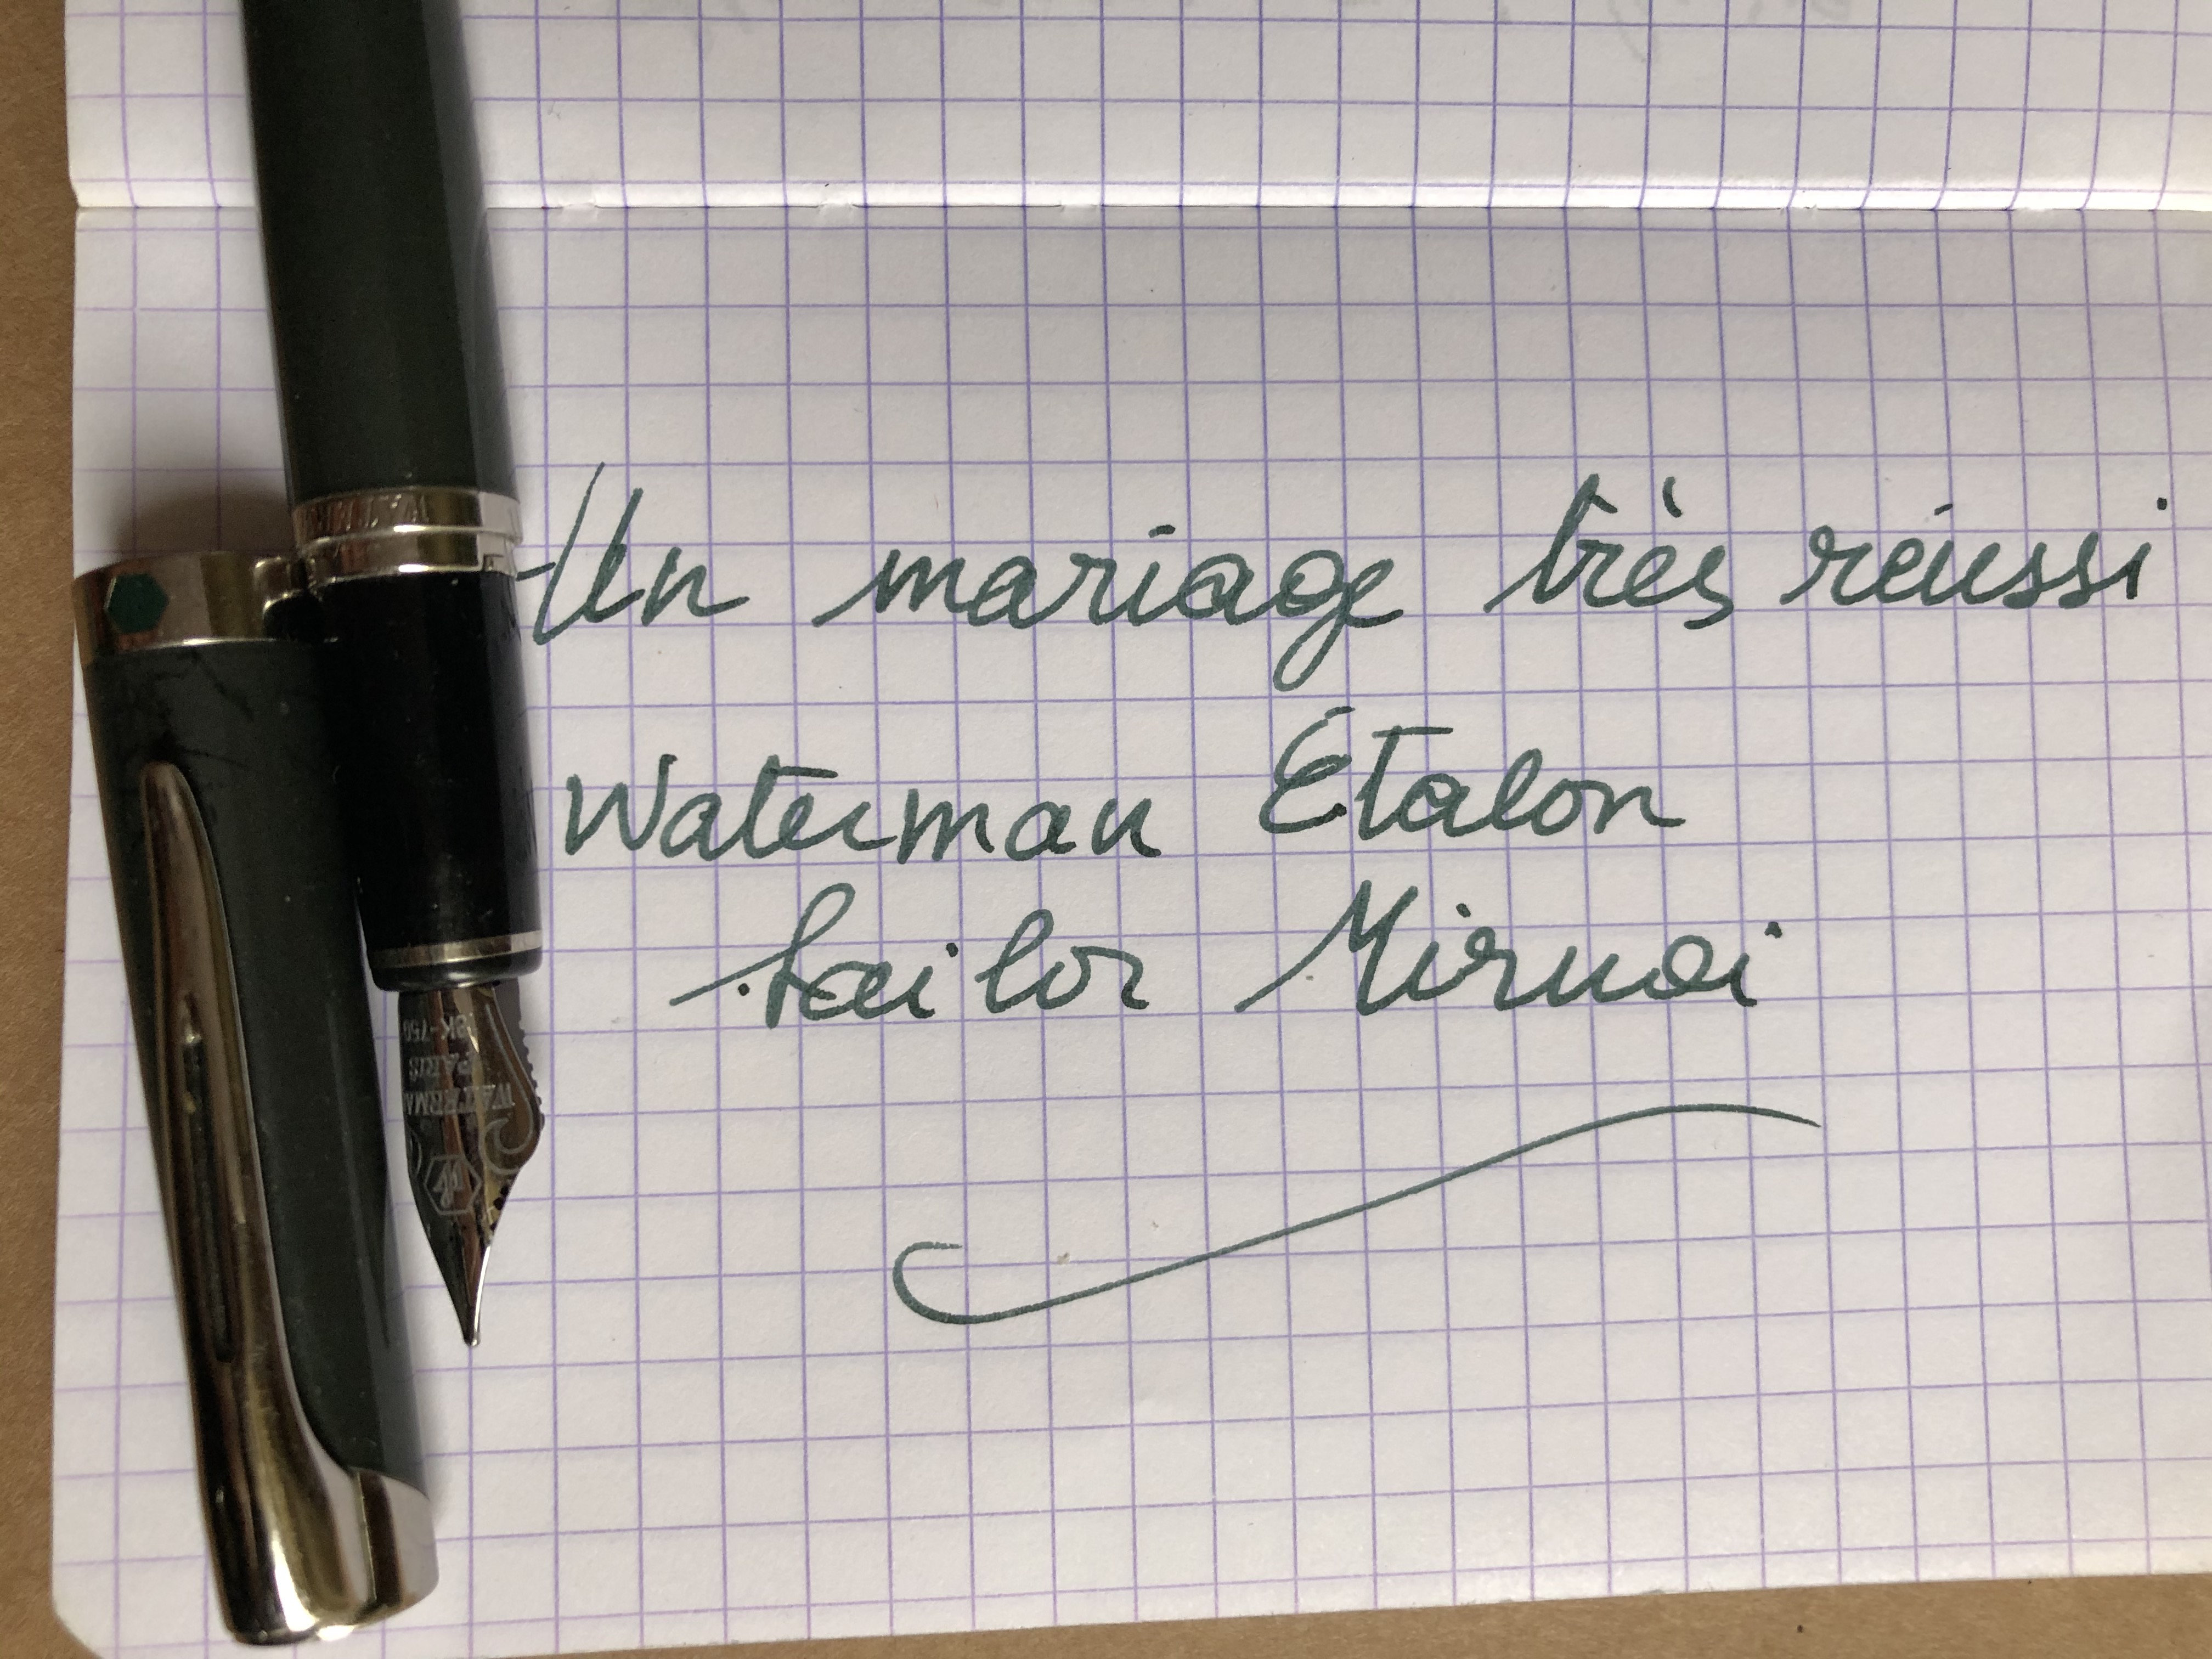 Un mariage très réussi
Waterman Étalon
Sailor Miruai
18K-750
PARIS
WATERMA